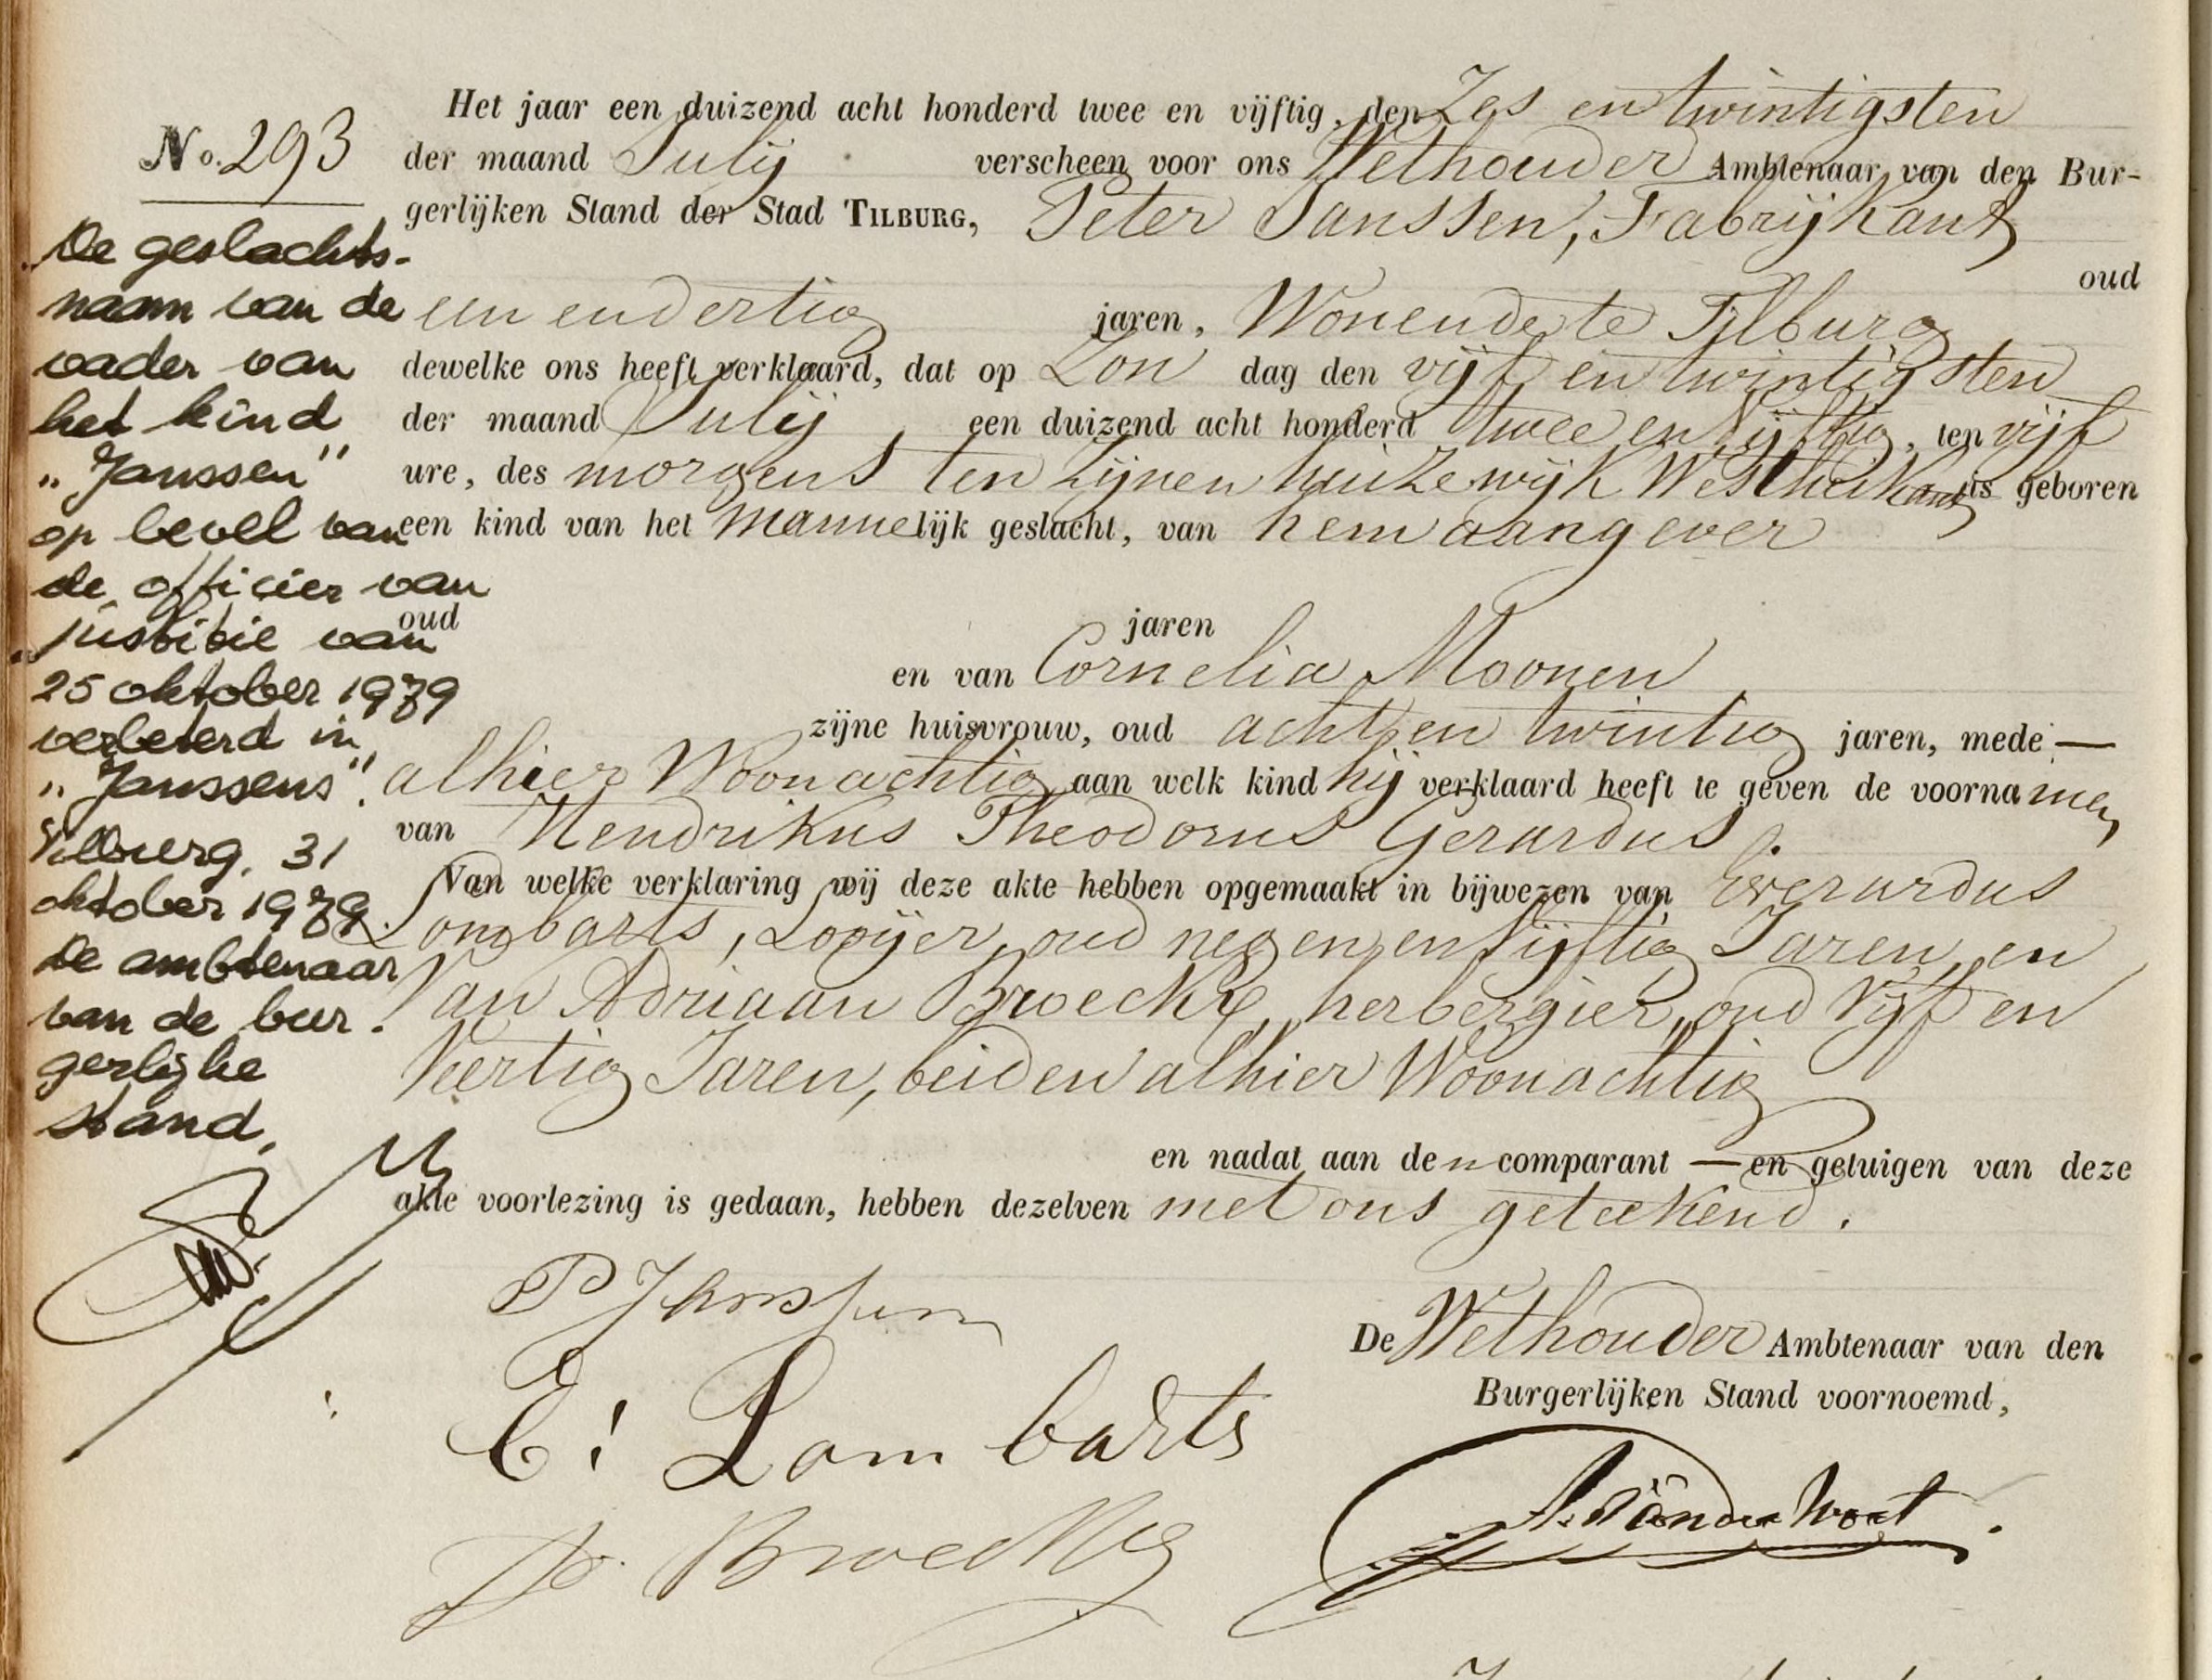 No. 293
De geslachts-
naam van de
vader van
het kind
„Janssen"
op bevel van
de officier van
justitie van
25 oktober 1979
verbeterd in
„Janssens".
Tilburg, 31
oktober 1979.
De ambtenaar
van de bur-
gerlijke
stand,
Het jaar een duizend acht honderd twee en vijftig, den Zes en twintigsten
der maand Julij verscheen voor ons Wethouder Ambtenaar van den Bur-
gerlijken Stand der Stad TILBURG, Peter Janssen, Fabrijkant
oud
een en dertig jaren, Wonende te Tilburg
dewelke ons heeft verklaard, dat op Zon dag den vijf en twintigsten
der maand Julij een duizend acht honderd twee en Vijftig, ten vijf
ure, des morgens ten Zijnen huize wijk Westheikant is geboren
een kind van het mannelijk geslacht, van hem aangever
oud jaren
en van Cornelia Moonen
zijne huisvrouw, oud acht en twintig jaren, mede —
alhier Woonachtig aan welk kind hij verklaard heeft te geven de voornamen
van Hendrikus Theodorus Gerardus.
Van welke verklaring wij deze akte hebben opgemaakt in bijwezen van Everardus
Lombarts, Looijer, oud negen en Vijftig Jaren, en
Van Adriaan Broeckx, herbergier, oud Vijf en
Veertig Jaren, beiden alhier Woonachtig
en nadat aan den comparant — en getuigen van deze
akte voorlezing is gedaan, hebben dezelven met ons geteekend.
P Janssen
E: Lombarts
A. Broeckx
De Wethouder Ambtenaar van den
Burgerlijken Stand voornoemd,